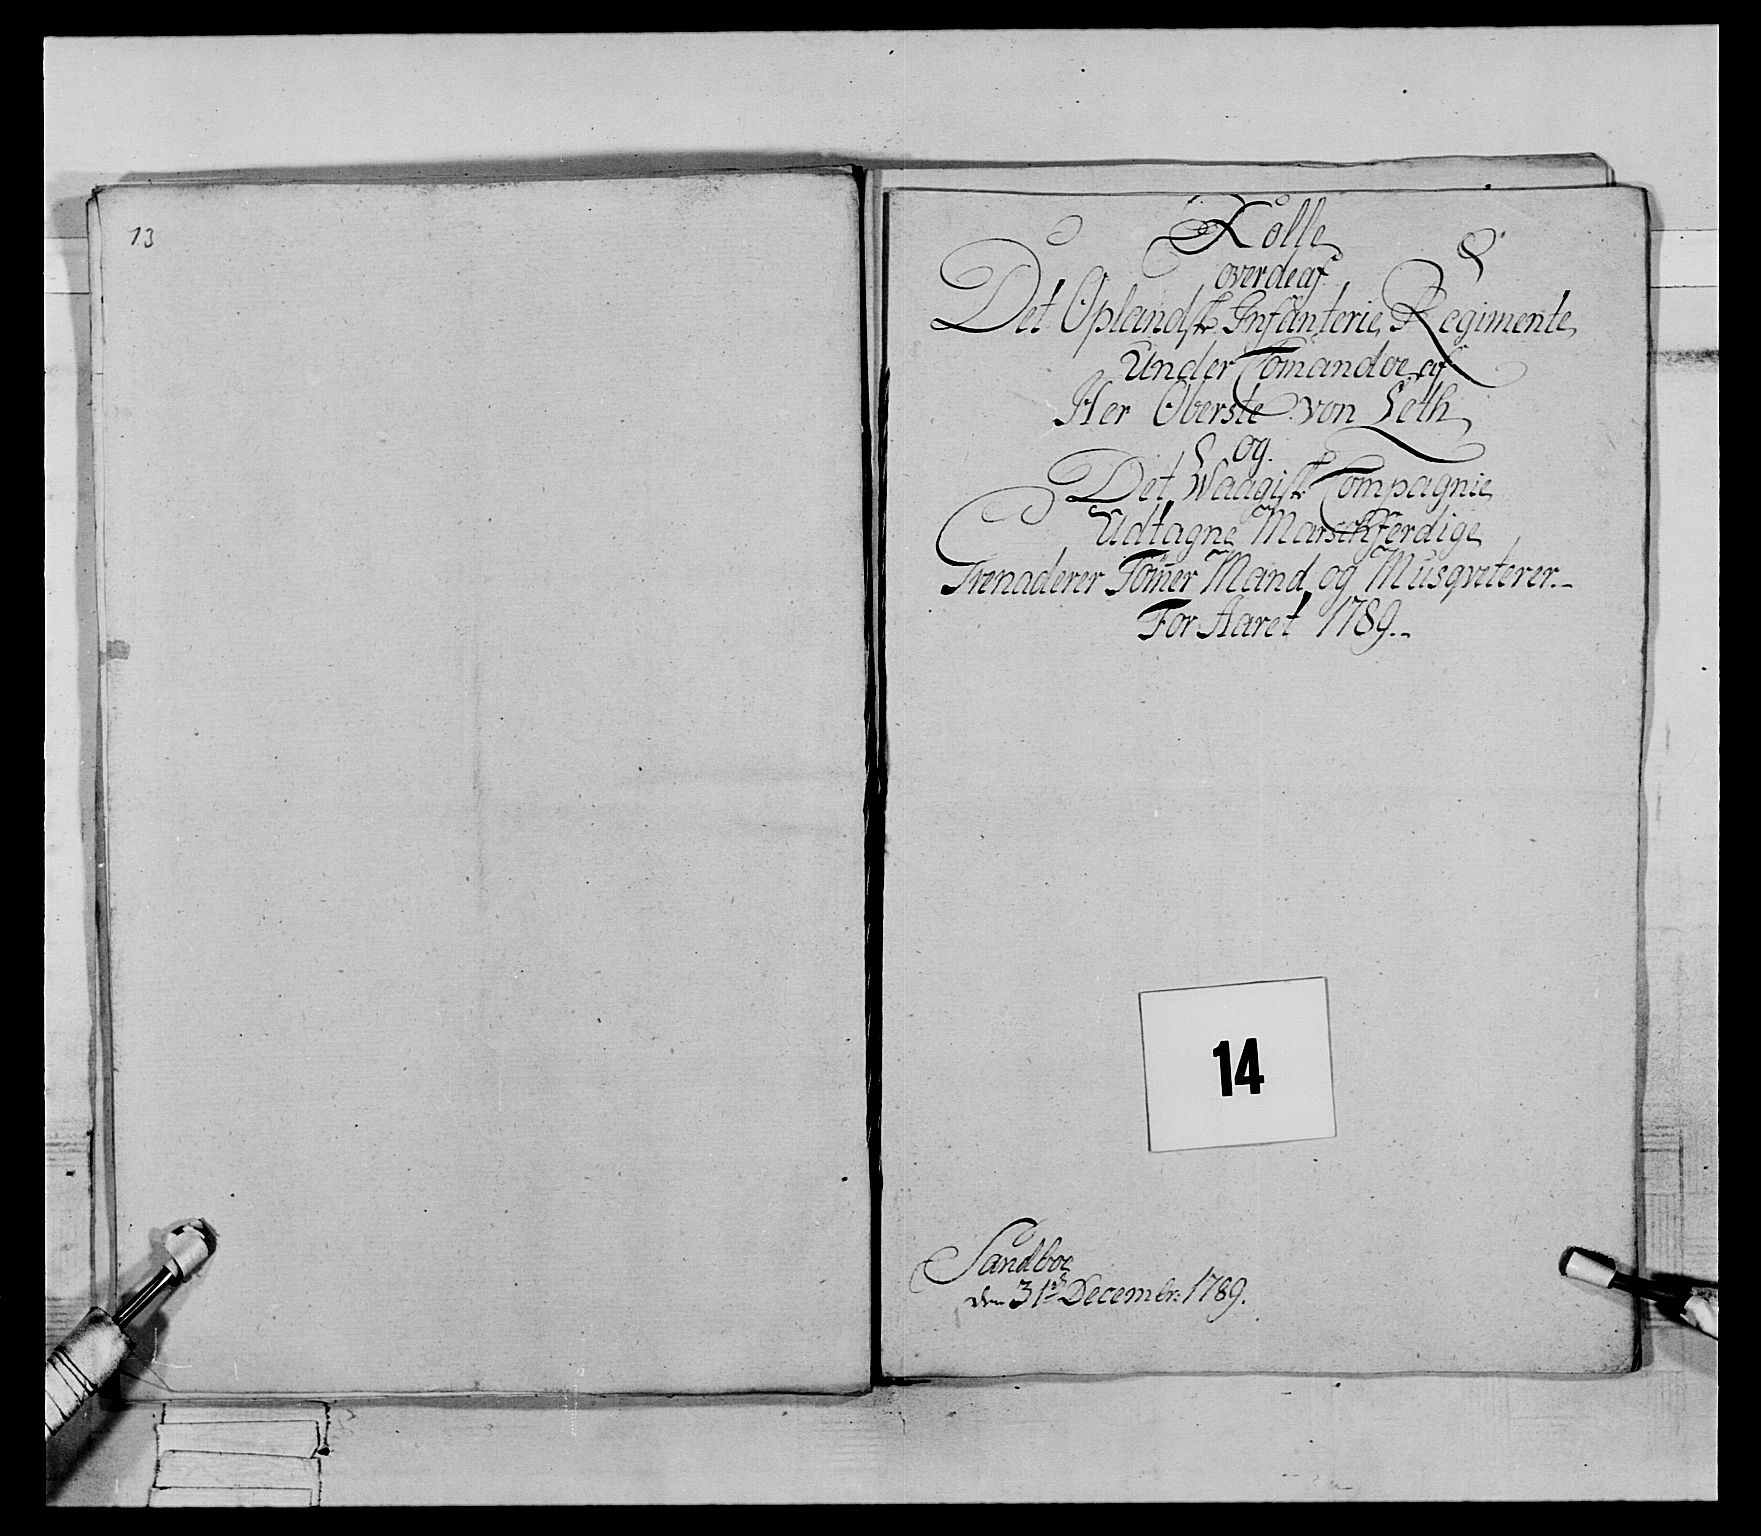 13
Rolle
over de af
Det Oplandske Infanterie Regimente
Under Comandoe af
Her Oberste von Leth
og
Det Waagiske Compagnie
Udtagne Marschferdige
Grenaderer Tömer Mand og Musqveterer.
For Aaret 1789.
14
Sandboe
den 31te Decembr: 1789.